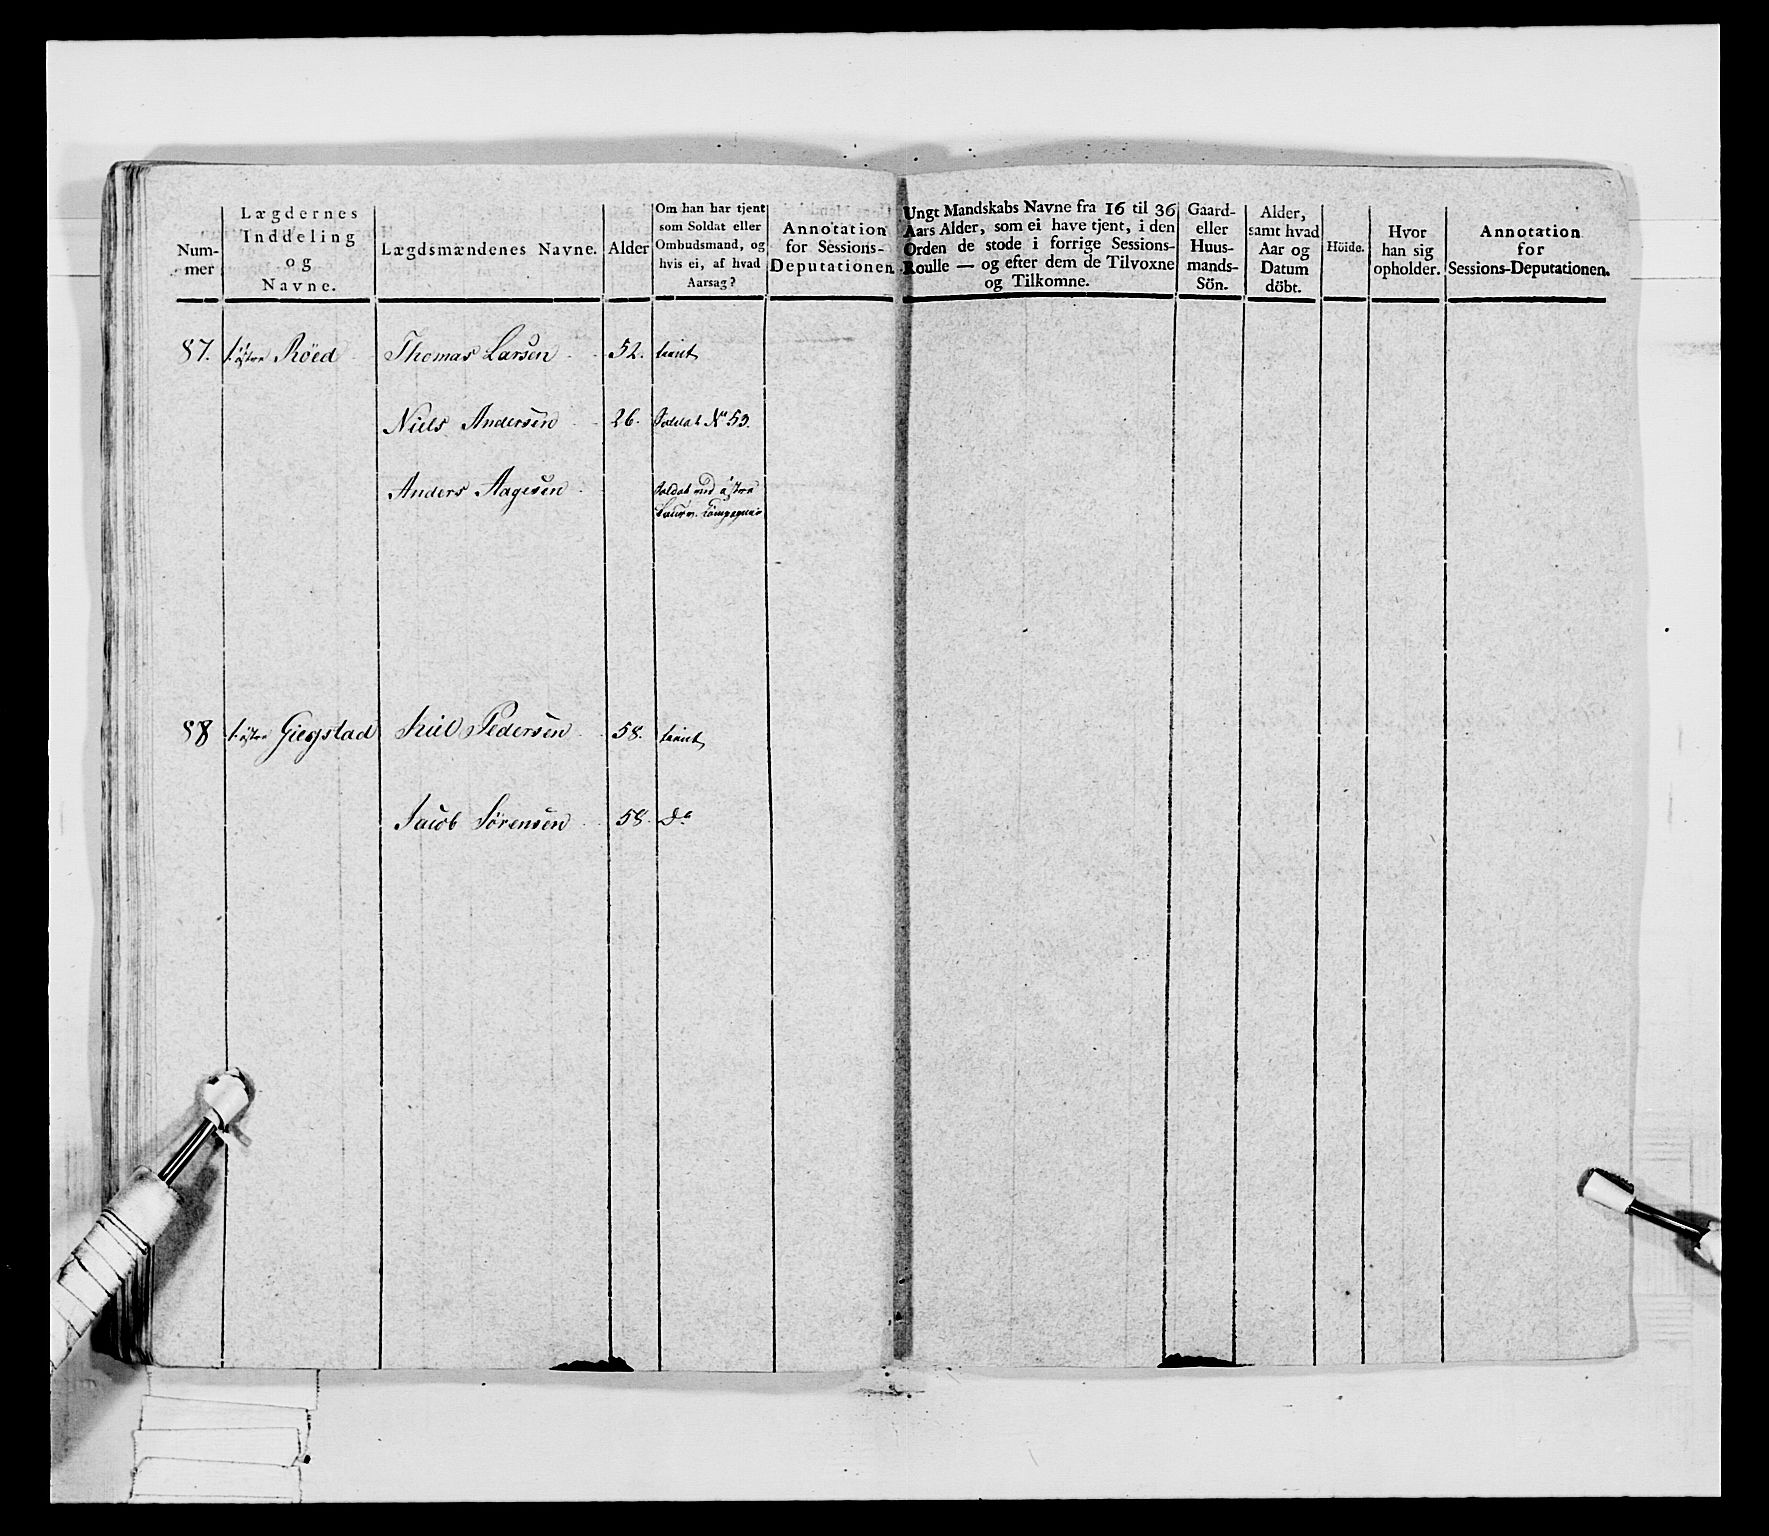 Num-
mer
Lægdernes
Inddeling
og
Navne.
Lægdsmændenes Navne.
Alder
Om han har tjent
som Soldat eller
Ombudsmand, og
hvis ei, af hvad
Aarsag?
Annotation
for Sessions-
Deputationen.
Ungt Mandskabs Navne fra 16 til 36
Aars Alder, som ei have tjent, i den
Orden de stode i forrige Sessions-
Roulle — og efter dem de Tilvoxne
og Tilkomne.
Gaard-
eller
Huus-
mands-
Sön.
Alder,
samt hvad
Aar og
Datum
döbt.
Höide.
Hvor
han sig
opholder.
Annotation
for
Sessions-Deputationen.
87. östre Röed Thomas Larsen 52. tient
Niels Andersen 26. Soldat No 53.
Anders Aagesen Soldat ved östre
Compagnie
88 östre Giegstad Pedersen 58. tient
Jacob Sörensen 58. Do